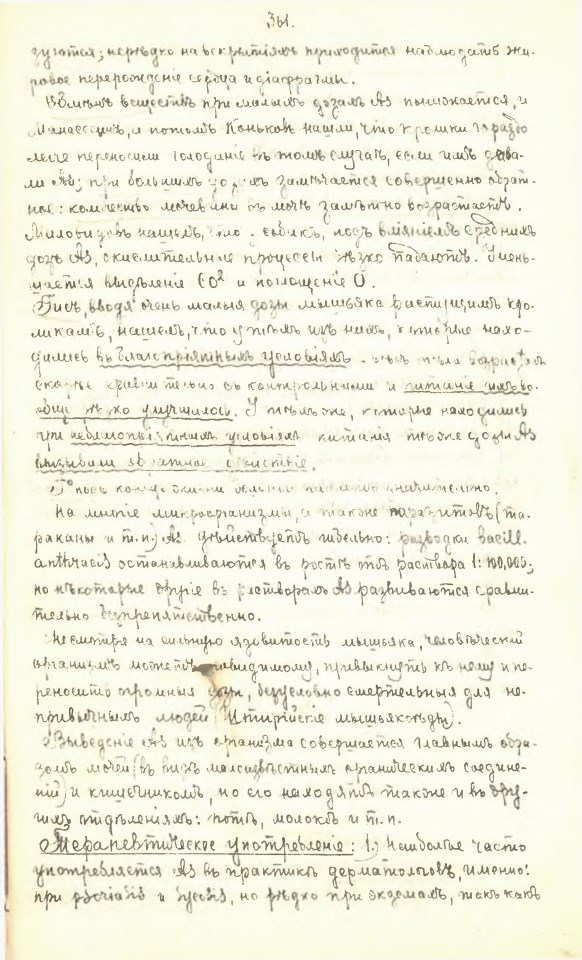 361.
зуются; нерѣдко на вскрытіяхъ приходится наблюдать жи-
ровое перерожденіе сердца и діафрагмы.
Обмѣнъ веществъ при малыхъ дозахъ As понижается, и
Манассеинъ, а потомъ Коньковъ нашли, что кролики гораздо
легче переносили голоданіе въ томъ случаѣ, если имъ дава-
ли As; при большихъ дозахъ замѣчается совершенно обрат-
ное: количество мочевины въ мочѣ замѣтно возрастаетъ.
нашелъ, что у собакъ, подъ вліяніемъ среднихъ
дозъ As, окислительные процессы рѣзко падаютъ. Умень-
шается выдѣленіе CO² и поглощеніе O.
вводя очень малыя дозы мышьяка растущимъ кро-
ликамъ, нашелъ, что у тѣхъ изъ нихъ, которые нахо-
дились въ благопріятныхъ условіяхъ вѣсъ тѣла возрасталъ
скорѣе сравнительно съ контрольными и питаніе ихъ во-
обще рѣзко улучшилось. У тѣхъ же, которые находились
при неблагопріятныхъ условіяхъ питанія тѣ же дозы As
вызывали обратное дѣйствіе.
значительно.
На многіе микроорганизмы, а также паразитовъ (та-
раканы и т.п.) As дѣйствуетъ гибельно: разводки bacill.
anthracis останавливаются въ ростѣ отъ раствора 1:100,000;
но нѣкоторые другіе въ растворахъ As развиваются сравни-
тельно безпрепятственно.
Несмотря на сильную ядовитость мышьяка, человѣческій
организмъ можетъ повидимому, привыкнуть къ нему и пе-
реносить огромныя дозы, безусловно смертельныя для не-
привычныхъ людей (Штирійскіе мышьякоѣды).
Выведеніе As изъ организма совершается главнымъ обра-
зомъ мочей (въ видѣ малоизвѣстныхъ органическихъ соедине-
ній) и кишечникомъ, но его находятъ также и въ дру-
гихъ отдѣленіяхъ: потѣ, молокѣ и т.п.
Терапевтическое употребленіе: 1.) Наиболѣе часто
употребляется As въ практикѣ дерматологовъ, именно:
при psoriasis и sycosis, но рѣдко при экземахъ, такъ какъ